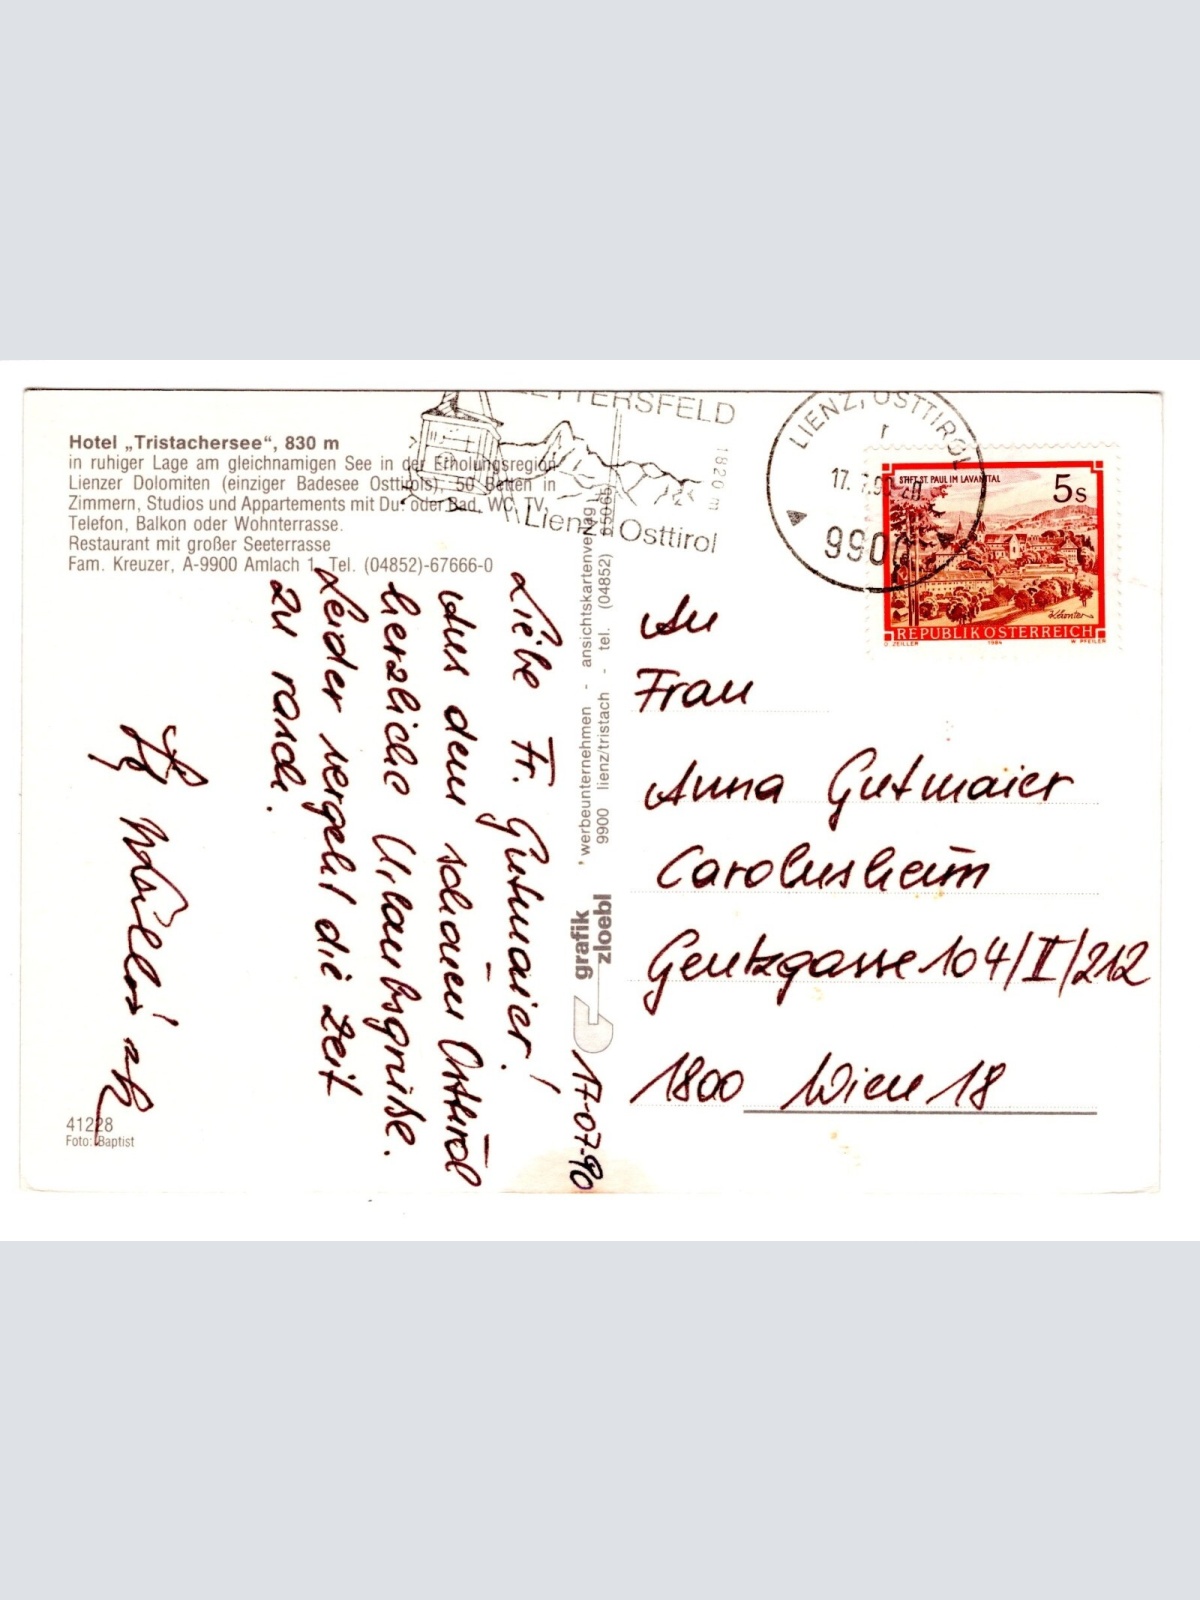 Hotel „Tristachersee“, 830 m
in ruhiger Lage am gleichnamigen See in der Erholungsregion
Lienzer Dolomiten (einziger Badesee Osttirols), 50 Betten in
Zimmern, Studios und Appartements mit Du. oder Bad, WC, TV,
Telefon, Balkon oder Wohnterrasse.
Restaurant mit großer Seeterrasse
Fam. Kreuzer, A-9900 Amlach 1, Tel. (04852)-67666-0
17-07-90
Liebe Fr. Gutmaier!
Aus dem schönen Osttirol
herzliche Urlaubsgrüße.
Leider vergeht die Zeit
zu rasch.
41228
Foto: Baptist
werbeunternehmen - ansichtskartenverlag
9900 lienz/tristach - tel. (04852)
grafik
zloebl
ZETTERSFELD
1820 m
Lienz Osttirol
LIENZ, OSTTIROL
17. 7.90
9900
STIFT ST. PAUL IM LAVANTTAL
5 S
REPUBLIK ÖSTERREICH
O. ZEILLER 1984 W. PFEILER
An
Frau
Anna Gutmaier
Carolusheim
Gentzgasse 104/II/212
1800 Wien 18